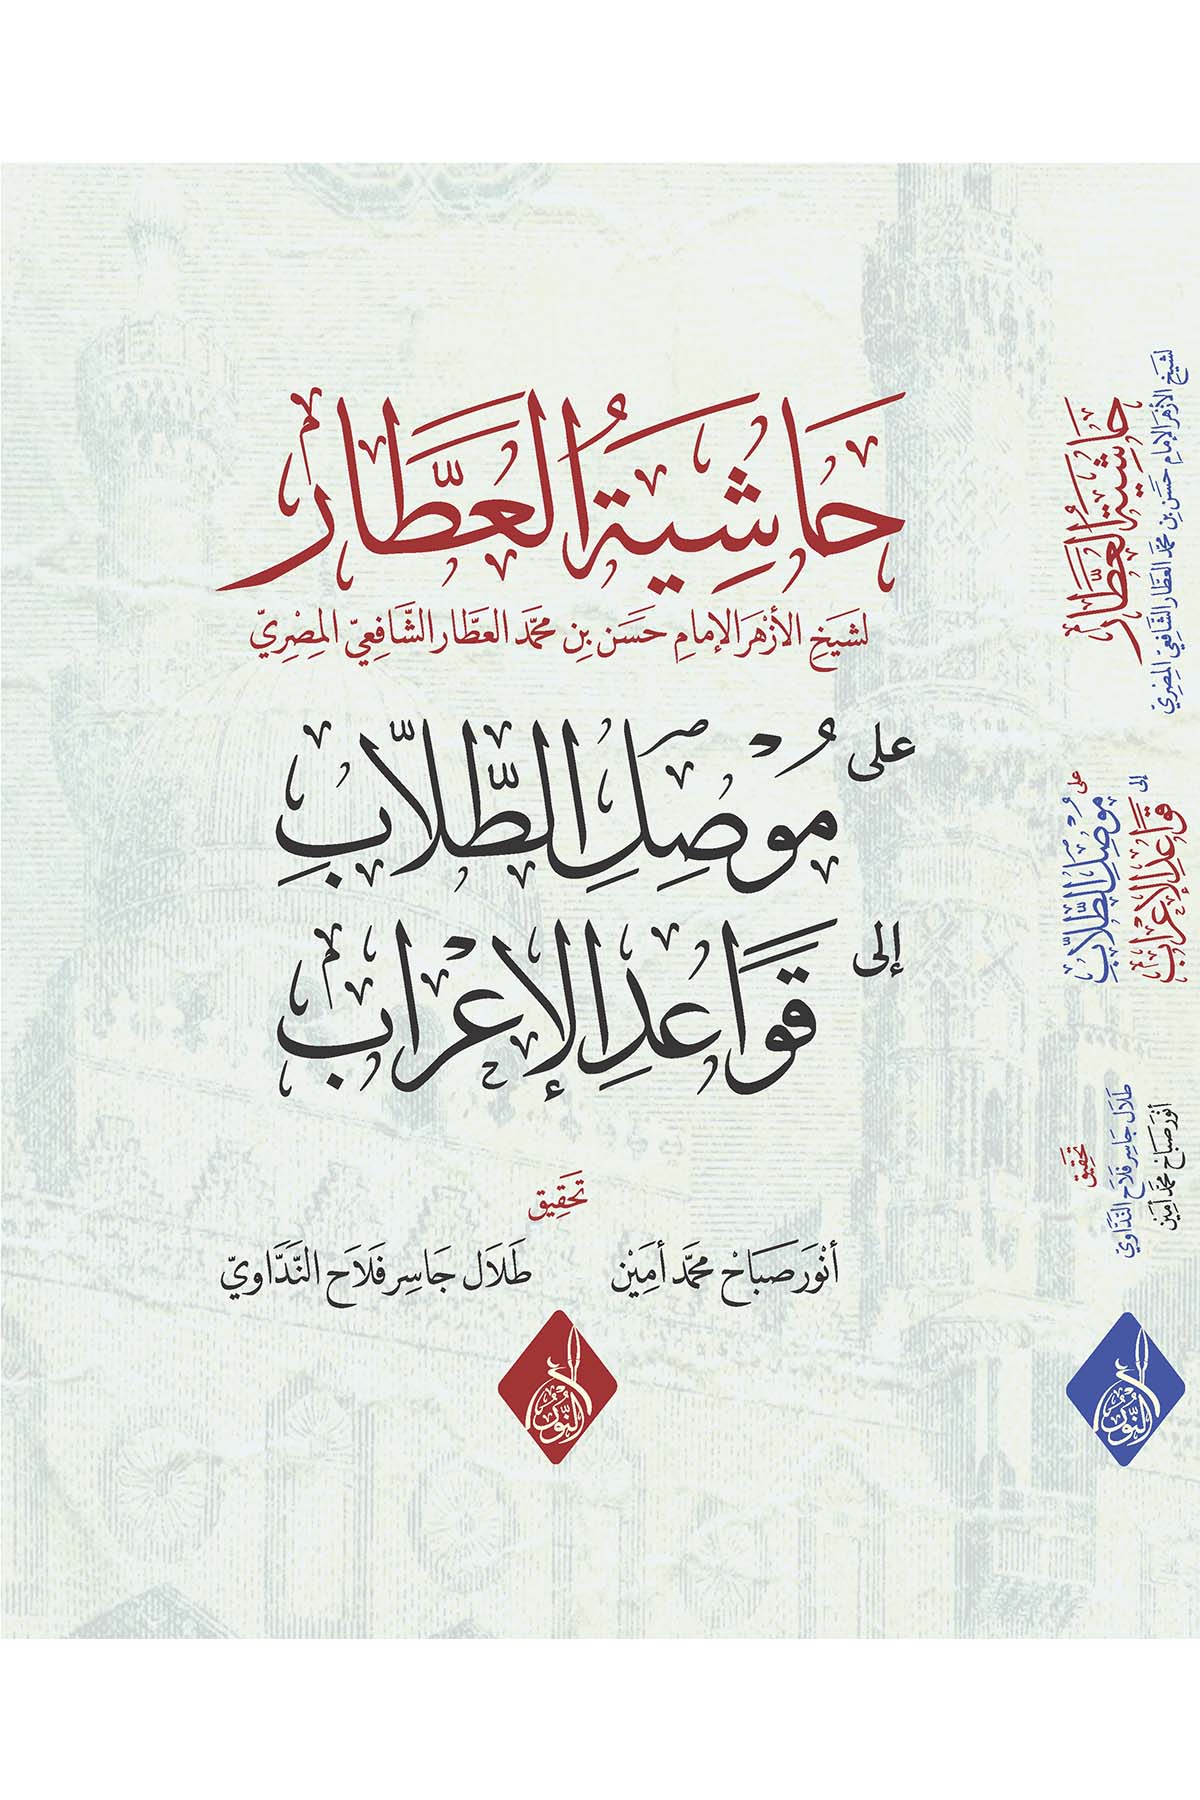 حَاشِيَةُ العَطَّار
لشَيخِ الأزْهَر الإمامِ حَسَن بِن محمَّد العَطَّار الشَّافِعِيّ المِصْرِيّ
على مُوْصِلِ الطُّلاَّبِ
إلى قَوَاعِدِ الإعْرَاب
تَحَقِيق
أنْوَر صَبَاحْ محمَّد أمَيْن
طَلَال جَاسِر فَلَاح النَّدَّاويّ
النُّور
حَاشِيَةُ العَطَّار
لشَيخِ الأزْهَر الإمامِ حَسَن بِن محمَّد العَطَّار الشَّافِعِيّ المِصْرِيّ
على مُوْصِلِ الطُّلاَّبِ
إلى قَوَاعِدِ الإعْرَاب
تَحَقِيق
طَلَال جَاسِر فَلَاح النَّدَّاويّ
أنْوَر صَبَاحْ محمَّد أمَيْن
النُّور